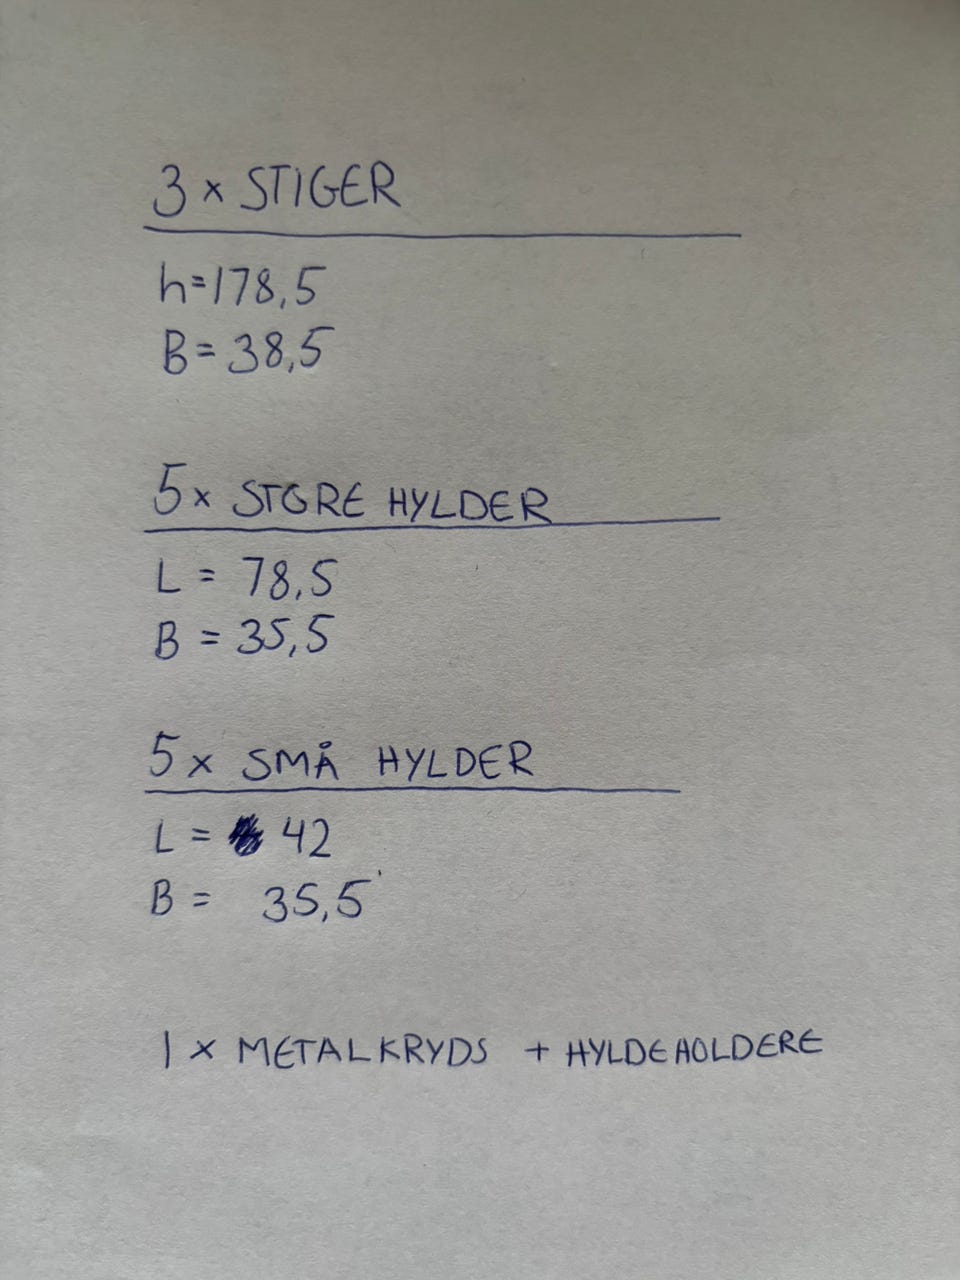 3 x STIGER
h=178,5
B=38,5
5x STORE HYLDER
L = 78,5
B = 35,5
5x SMÅ HYLDER
L = 42
B = 35,5
1 x METALKRYDS + HYLDEHOLDERE